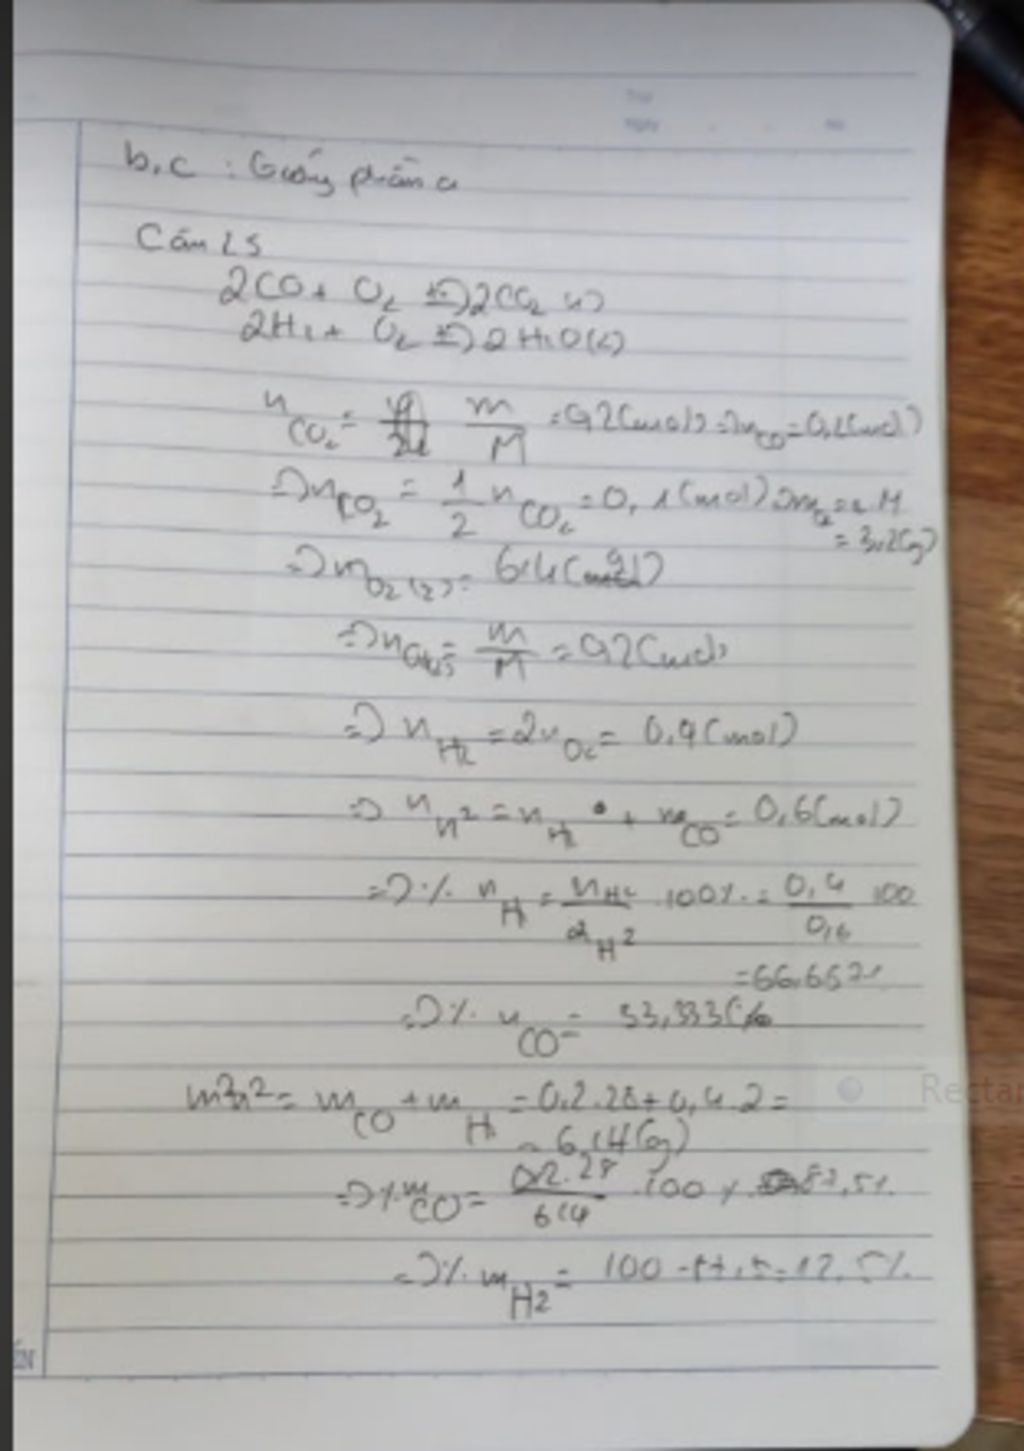 Thứ
Ngày No
b,c : Giống phần a
Câu 25
2CO + O₂ 2CO₂ (1)
2H₂ + O₂ 2H₂O (2)
n CO₂ = m/M = 0,2 (mol) => n CO = 0,2 (mol)
=> n O₂ = 1/2 n CO₂ = 0,1 (mol) => m O₂ = n.M
= 3,2 (g)
=> m O₂ (2) = 6,4 (g)
=> n = m/M = 0,2 (mol)
=> n H₂ = 2n O₂ = 0,4 (mol)
=> n n² = n H₂ + n CO = 0,6 (mol)
=> % n H = n H₂ / H² .100% = 0,4/0,6 100
= 66,65%
=> % n CO = 33,333%
= m CO + m H = 0,2.28 + 0,4.2 =
= 6,4 (g)
=> % m CO = 0,2.28/6,4 .100 87,5%
=> % m H2 = 100 - = 12,5%
Rectan